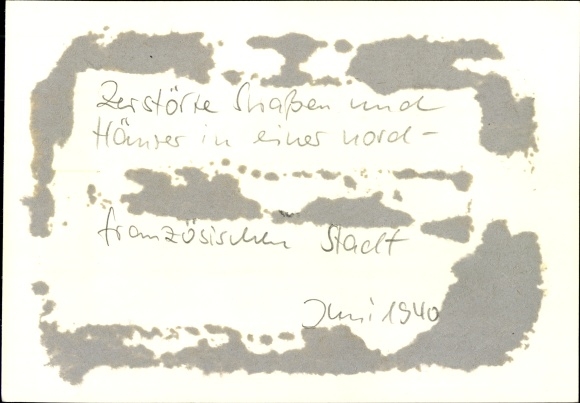 Zerstörte Straßen und
Häuser in einer nord-
französischen Stadt
Juni 1940